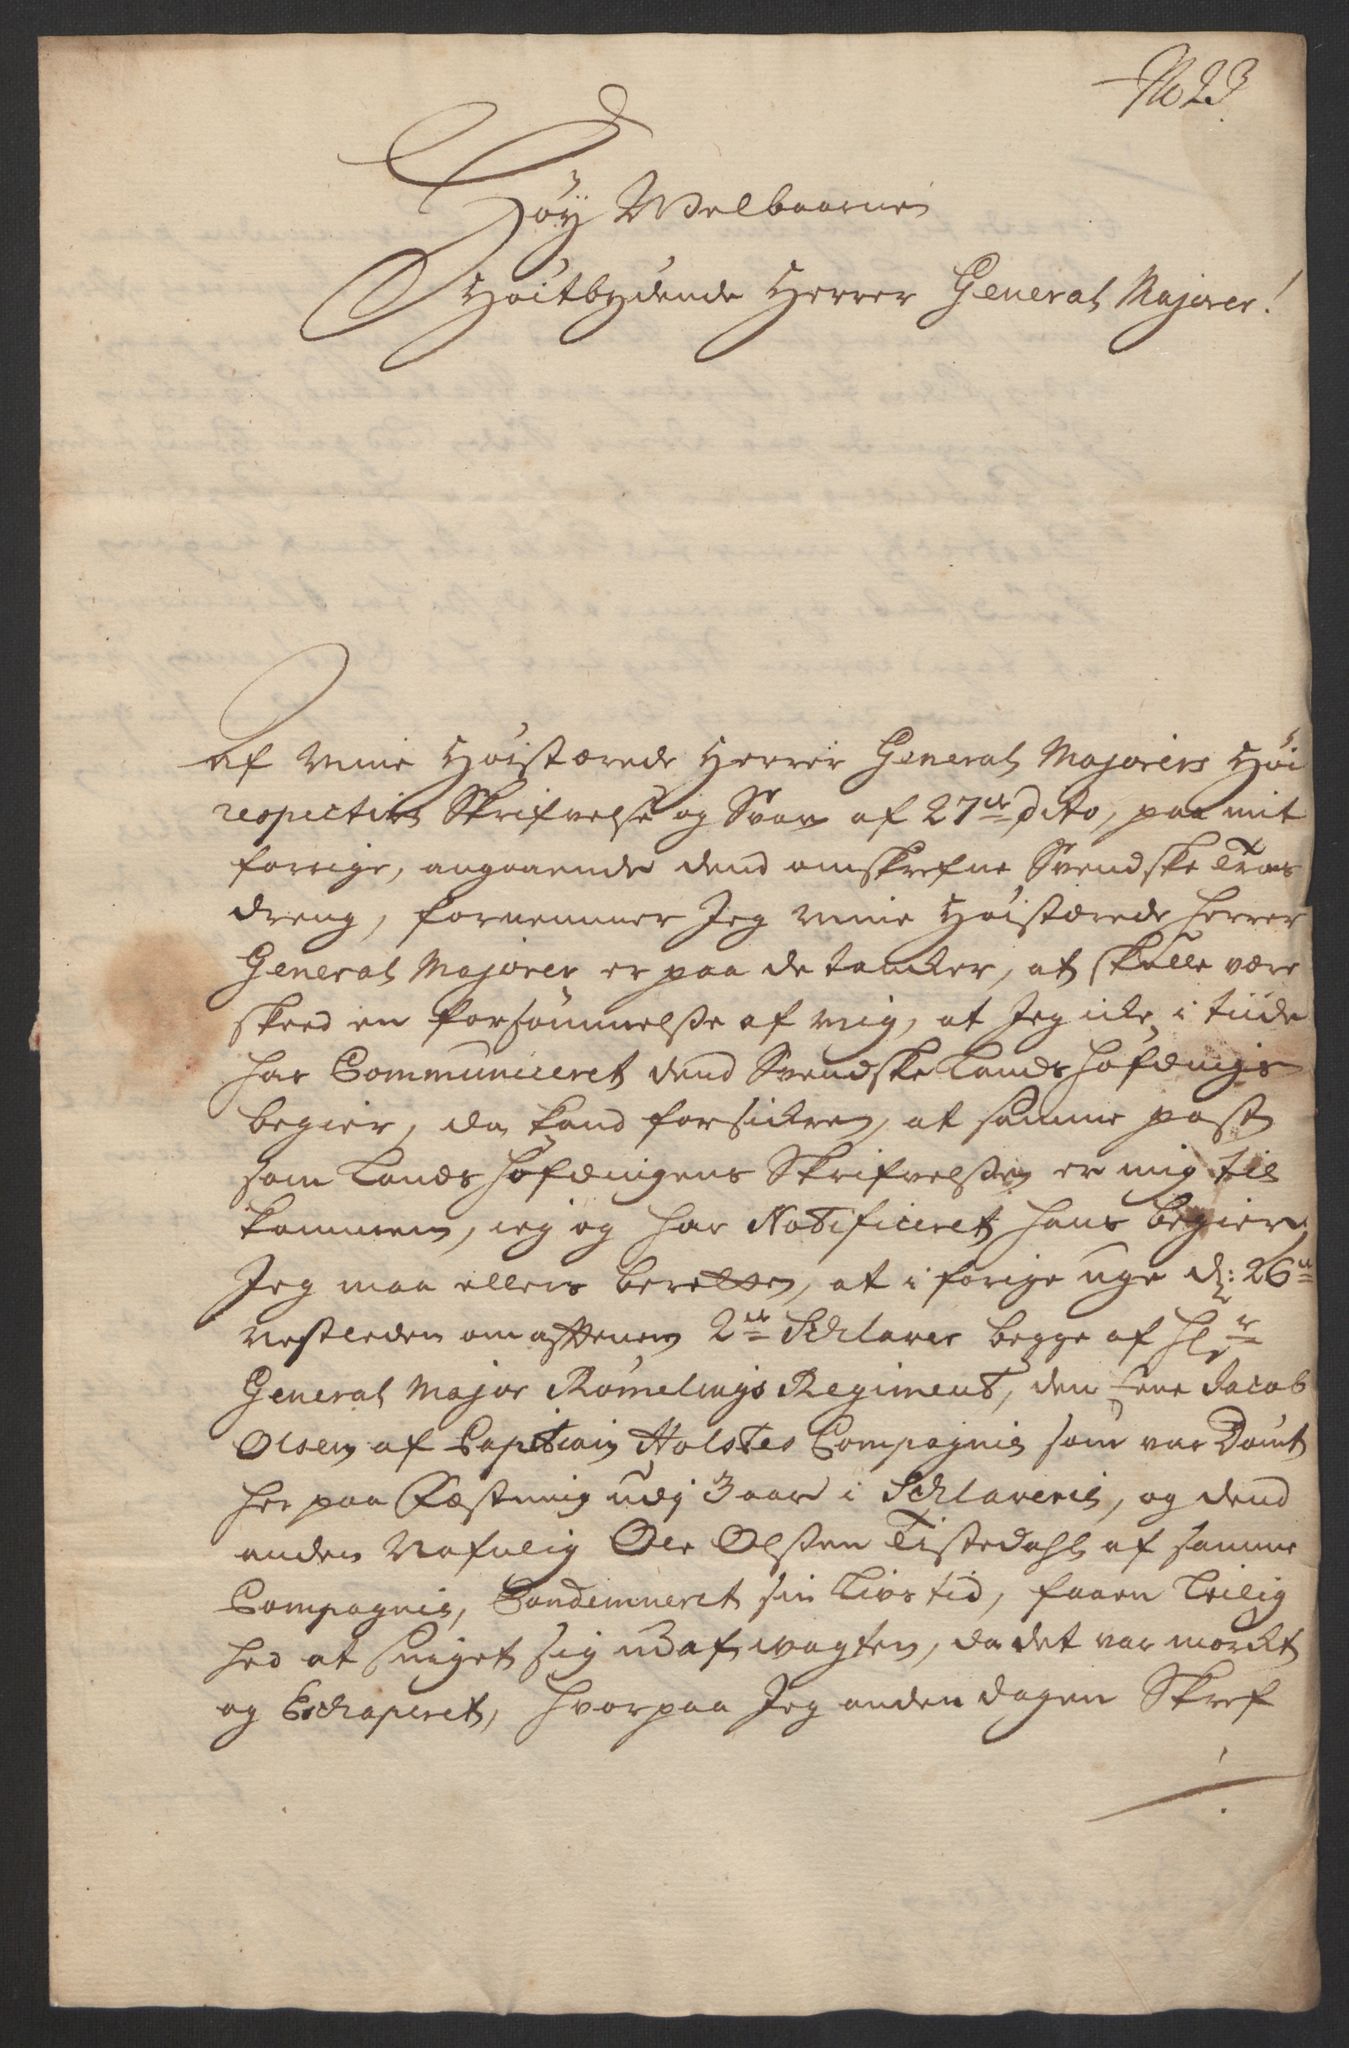 No 23
Høy Welbaarne
Høitbydende Herrer General Majorer!
Af mine Høistærede Herrer General Majorers Høi
respective Skrifvelse og Svar af 27de dito, paa mit
forrige, angaaende dend omskrefne Svendske
dreng, fornemmer Jeg mine Høistærede herrer
General Majorer er paa de tancker, at skulle være
skeed en forsømmelsse af mig, at Jeg icke i tiide
har Communiceret dend Svendske Lands høfdings
begier, da kand forsickre, at samme post
som Landshøfdingens Skrifvelsse er mig til
kommen, ieg og har Notificeret hans begier,
Jeg maa ellers berette, at i forige uge d: 26de
nestleden om afftenen 2de Schlaver begge af Hr
General Major Rømelings Regiment, den Eene Jacob
Olsen af Capitain Holstes Compagnie som var Dømt
her paa Fæstning udj 3 aar i Schlaverie, og dend
anden Nafnlig Ole Olssen Tistedahl af samme
Compagnie, Condemneret sin Livs tid, faaen Leilig
hed at sniget sig ud af wagten, da det var mørckt
og Echaperet, hvorpaa Jeg anden dagen Skref